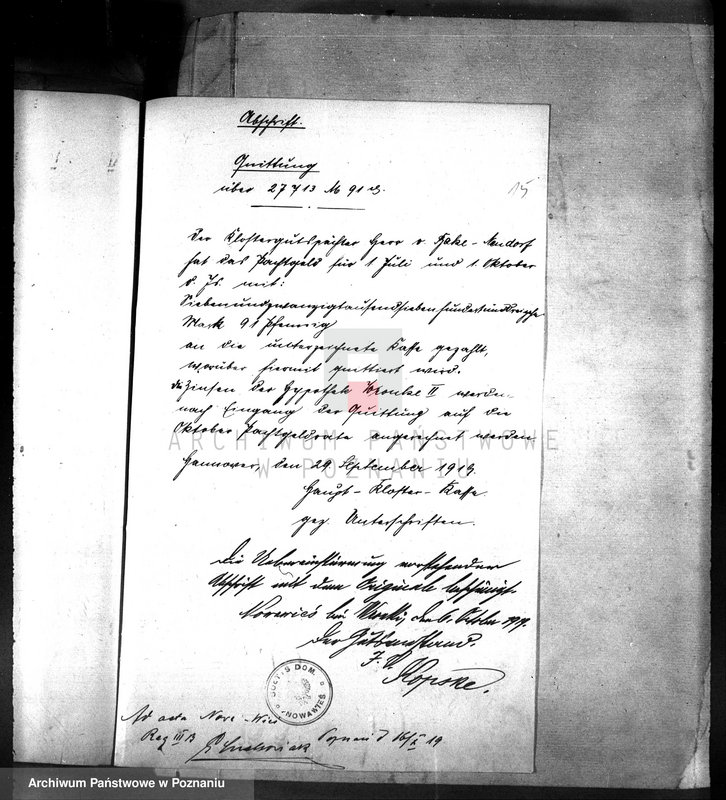 Abschrift.
Quittung
über 27713 M 91 d.
15
Der Klostergutspächter Herr v. Hake-Nendorf
hat das Pachtgeld für 1 Juli und 1. Oktober
d. Js. mit:
Siebenundzwanzigtausendsiebenhundertunddreizehn
Mark 91 Pfennig
an die unterzeichnete Kasse gezahlt,
worüber hiermit quittiert wird.
die Zinsen der Hypothek Wronke II werden
nach Eingang der Quittung auf die
Oktober Pachtgeldrate angerechnet werden
Hannover, den 29. September 1919.
Haupt-Kloster-Kasse.
gez. Unterschriften.
Die Uebereinstimmung vorstehender
Abschrift mit dem Originale bescheinigt.
bei Wronki, den 6. October 1919.
Der Gutsvorstand.
Klopske.
DOM.
NOWAWIES
Ad acta Nowe Wies
Reg III B
Poznań d 16/X 19
ARCHIWUM PAŃSTWOWE
W POZNANIU
Archiwum Państwowe w Poznaniu